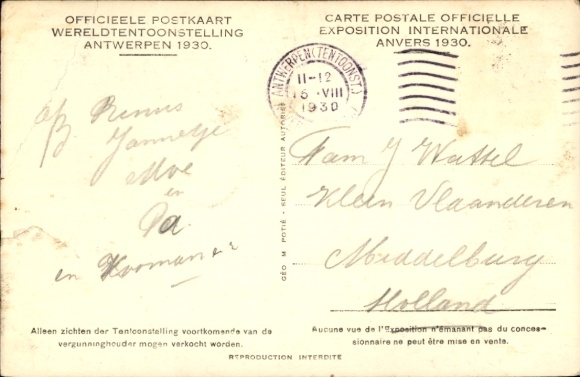 OFFICIEELE POSTKAART
WERELDTENTOONSTELLING
ANTWERPEN 1930.
CARTE POSTALE OFFICIELLE
EXPOSITION INTERNATIONALE
ANVERS 1930.
ANTWERPEN (TENTOONST.)
11-12
15 VIII
1930
Rinus
Jannetje
Moe
en
Pa
en
Fam J Wattel
Klein Vlaanderen
Middelburg
Holland
GÉO M. POTIÉ - SEUL ÉDITEUR AUTORISÉ
Alleen zichten der Tentoonstelling voortkomende van de
vergunninghouder mogen verkocht worden.
Aucune vue de l'Exposition n'émanant pas du conces-
sionnaire ne peut être mise en vente.
REPRODUCTION INTERDITE